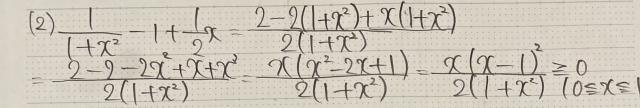 (2) 1/(1+x²) - 1 + 1/2 x = (2-2(1+x²)+x(1+x²))/(2(1+x²))
= (2-2-2x²+x+x³)/(2(1+x²)) = x(x²-2x+1)/(2(1+x²)) = x(x-1)²/(2(1+x²)) ≧ 0 (0≦x≦1